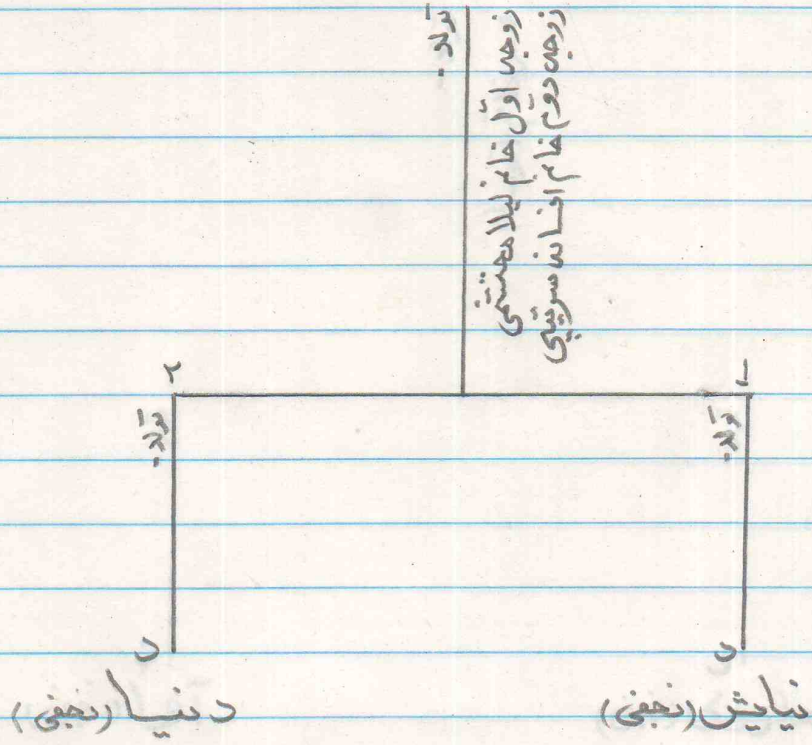 تولد -
زوجه اول خانم لیلا محتشمی
زوجه دوم خانم افسانه سرتیپی
۱-
۲
تولد -
تولد -
د
د
نیایش (نجفی)
دنیا (نجفی)